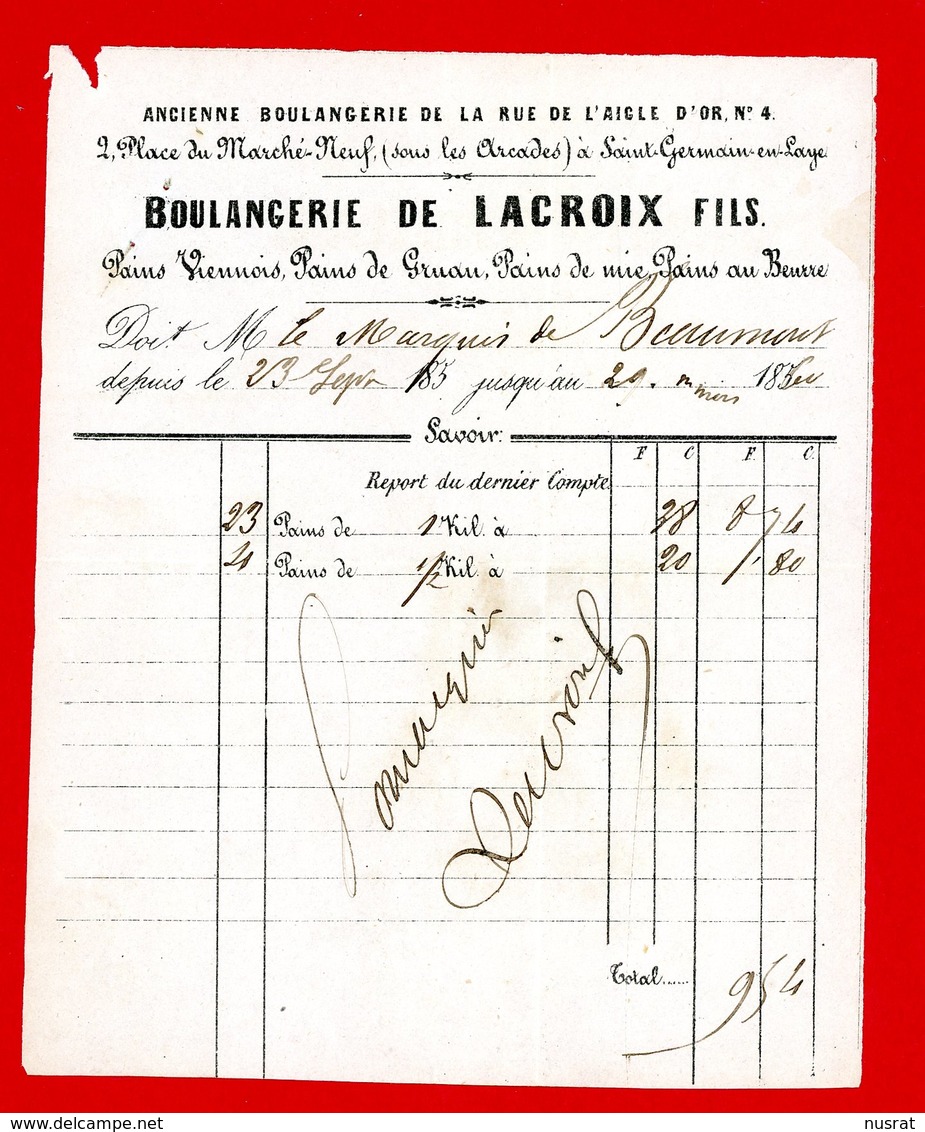 ANCIENNE BOULANGERIE DE LA RUE DE L'AIGLE D'OR, Nº 4.
2, Place du Marché-Neuf, (sous les Arcades) à Saint-Germain-en-Laye
BOULANGERIE DE LACROIX FILS.
Pains Viennois, Pains de Gruau, Pains de mie, Pains au Beurre
Doit M le Marquis de Beaumont
depuis le 23 Sepr 185 jusqu'au 29 185
Savoir:
F C F C
Report du dernier Compte
23 Pains de 1 Kil. à 38 8 74
4 Pains de 1/2 Kil. à 20 80
Lacroix
Total...... 9 54
nusrat delcampe.net